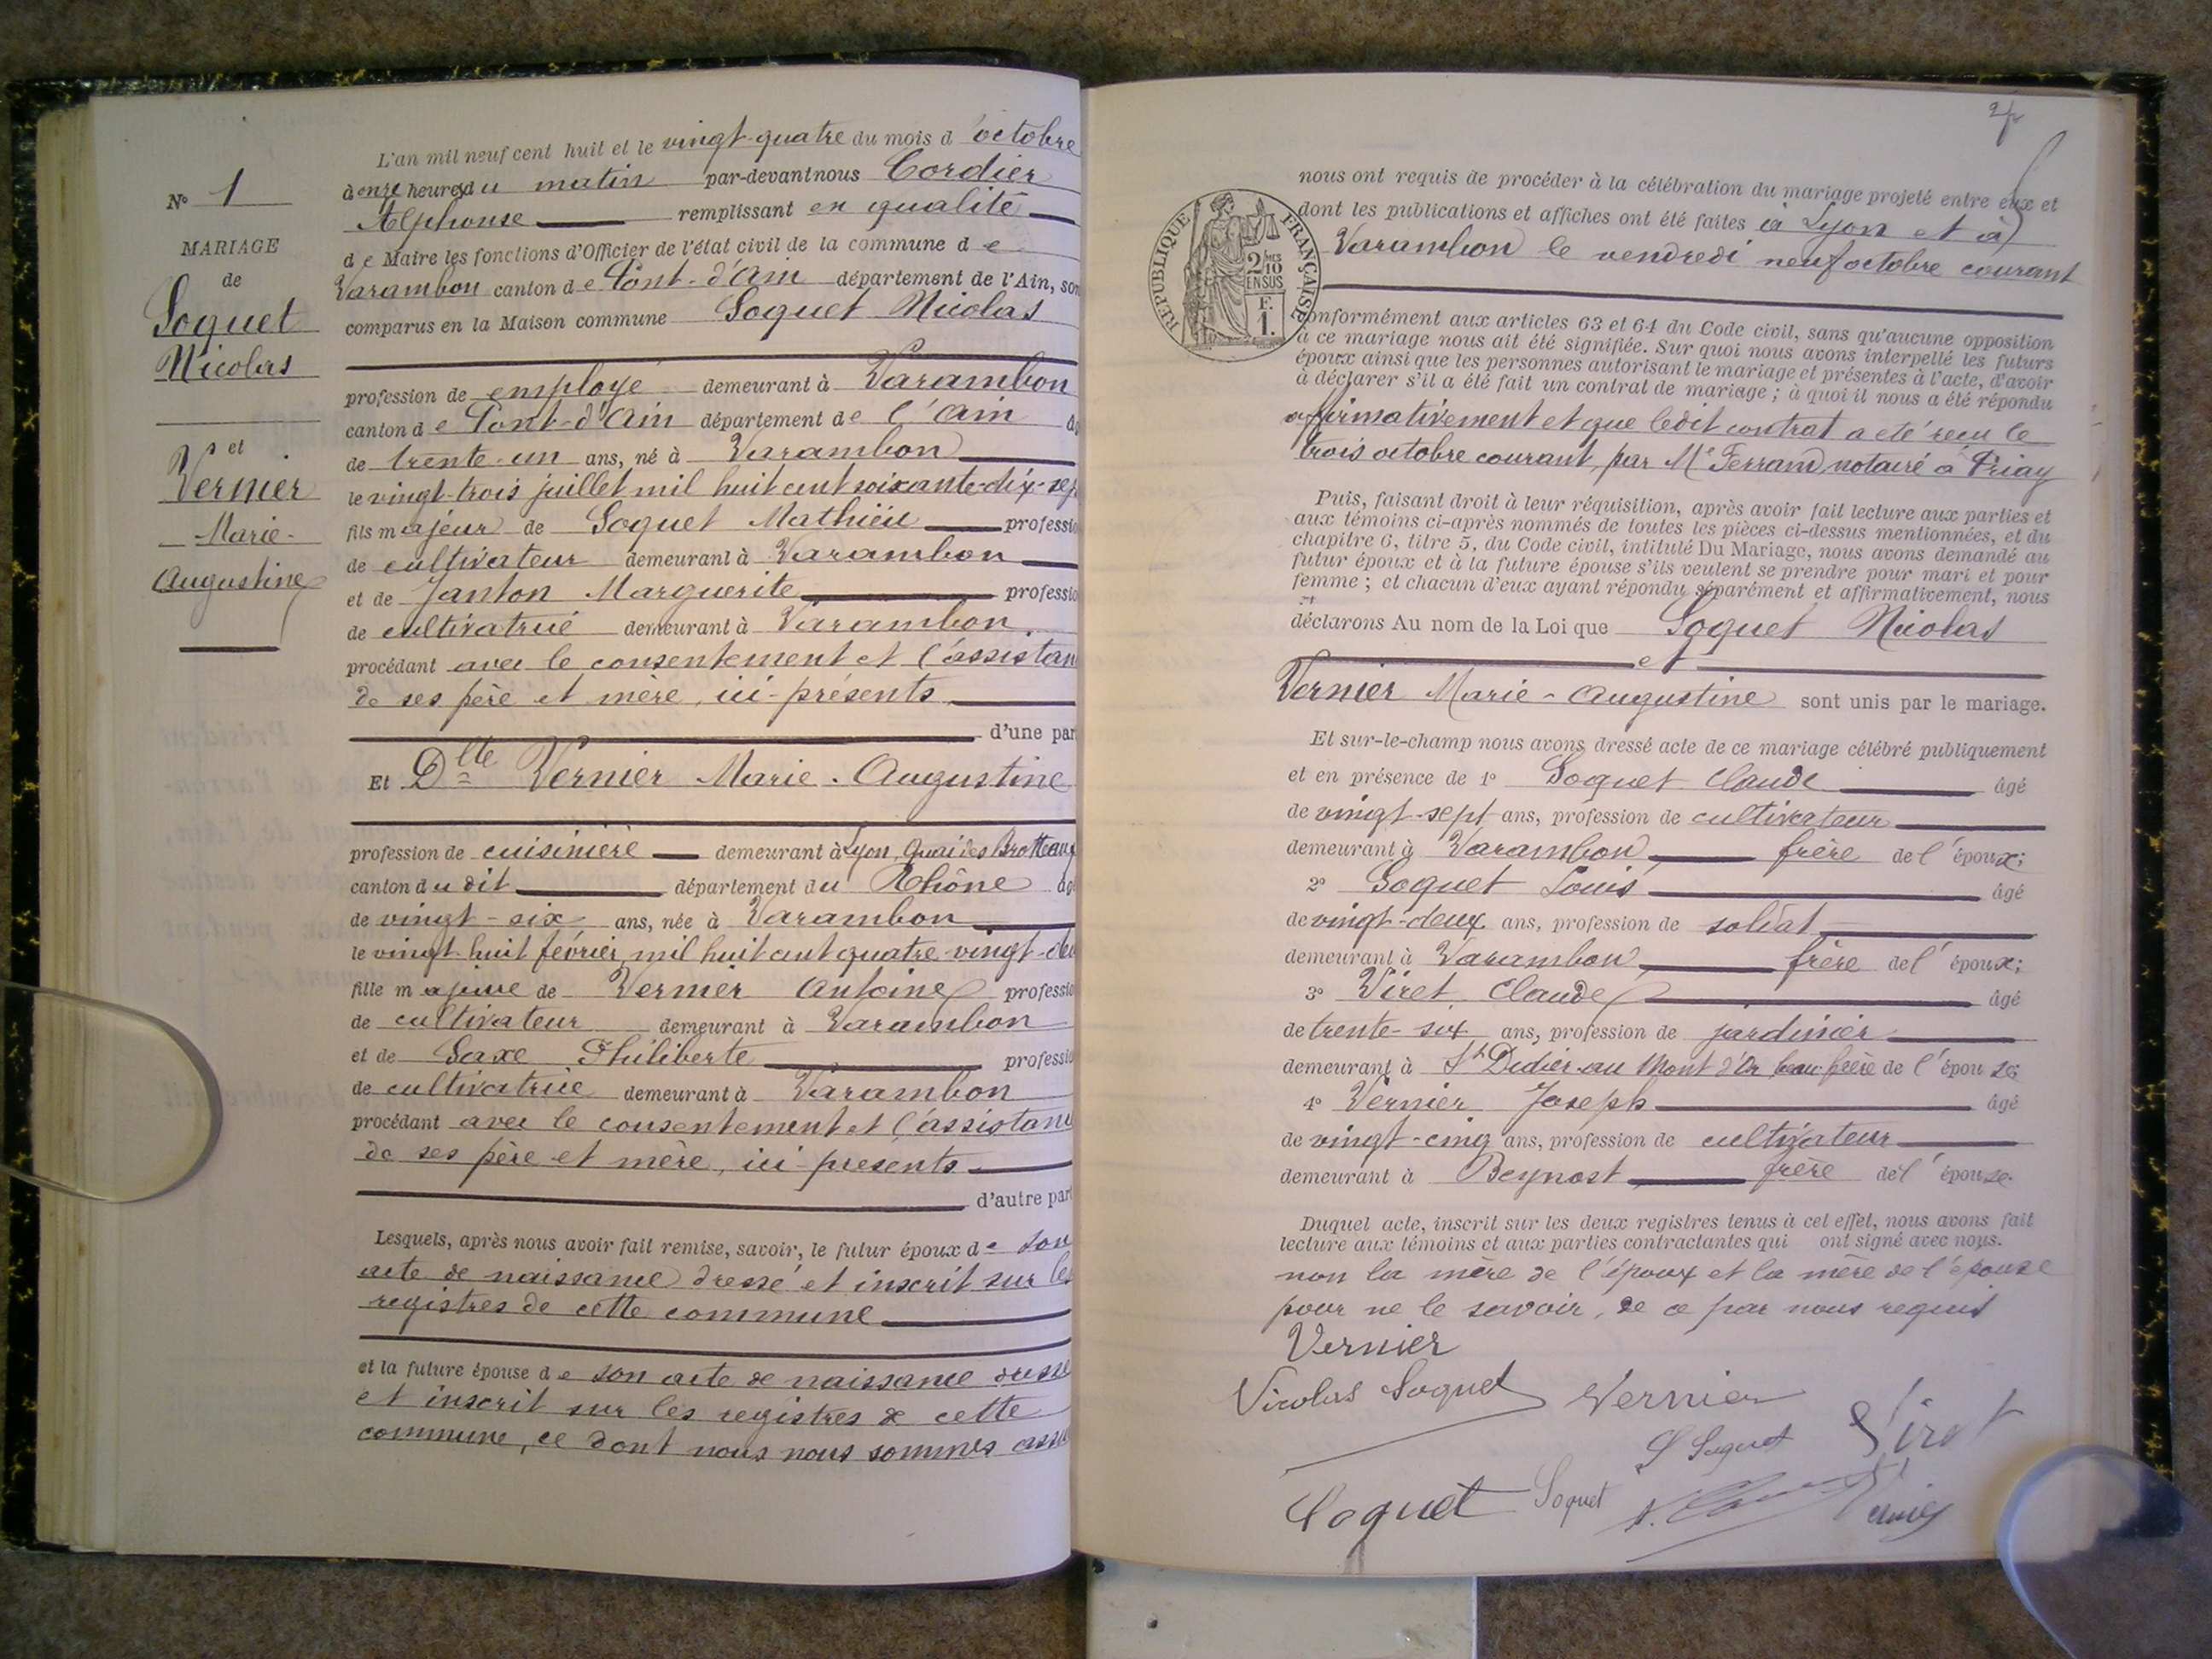 L'an mil neuf cent huit et le vingt-quatre du mois d'octobre
à onze heures du matin par-devant nous Cordier
Alphonse remplissant en qualité
de Maire les fonctions d'Officier de l'état civil de la commune de
Varambon canton de Pont-d'Ain département de l'Ain, son
comparus en la Maison commune Soquet Nicolas
profession de employé demeurant à Varambon
canton de Pont-d'Ain département de l'Ain âg
de trente-un ans, né à Varambon
le vingt-trois juillet mil huit cent soixante-dix-sep
fils majeur de Soquet Mathieu professio
de cultivateur demeurant à Varambon
et de Janton Marguerite professio
de cultivatrice demeurant à Varambon
procédant avec le consentement et l'assistan
de ses père et mère, ici-présents
d'une par
Et Dlle Vernier Marie-Augustine
profession de cuisinière demeurant à Lyon, Quai des Brotteaux
canton dudit département du Rhône âg
de vingt-six ans, née à Varambon
le vingt-huit février, mil huit cent quatre-vingt-deu
fille majeure de Vernier Antoine professio
de cultivateur demeurant à Varambon
et de Saxe Philiberte professio
de cultivatrice demeurant à Varambon
procédant avec le consentement et l'assistanc
de ses père et mère, ici-présents
d'autre part
Lesquels, après nous avoir fait remise, savoir, le futur époux de son
acte de naissance dressé et inscrit sur les
registres de cette commune
et la future épouse de son acte de naissance dressé
et inscrit sur les registres de cette
commune, ce dont nous nous sommes assu
N° 1
MARIAGE
de
Soquet
Nicolas
et
Vernier
Marie-
Augustine
nous ont requis de procéder à la célébration du mariage projeté entre eux et
dont les publications et affiches ont été faites à Lyon et à
Varambon le vendredi neuf octobre courant
RÉPUBLIQUE FRANÇAISE
2/10
EN SUS
F.
1.
Conformément aux articles 63 et 64 du Code civil, sans qu'aucune opposition
à ce mariage nous ait été signifiée. Sur quoi nous avons interpellé les futurs
époux ainsi que les personnes autorisant le mariage et présentes à l'acte, d'avoir
à déclarer s'il a été fait un contrat de mariage ; à quoi il nous a été répondu
affirmativement et que ledit contrat a été reçu le
trois octobre courant, par Me Ferrand notaire à Priay
Puis, faisant droit à leur réquisition, après avoir fait lecture aux parties et
aux témoins ci-après nommés de toutes les pièces ci-dessus mentionnées, et du
chapitre 6, titre 5, du Code civil, intitulé Du Mariage, nous avons demandé au
futur époux et à la future épouse s'ils veulent se prendre pour mari et pour
femme ; et chacun d'eux ayant répondu séparément et affirmativement, nous
déclarons Au nom de la Loi que Soquet Nicolas
et
Vernier Marie-Augustine sont unis par le mariage.
Et sur-le-champ nous avons dressé acte de ce mariage célébré publiquement
et en présence de 1° Soquet Claude âgé
de vingt-sept ans, profession de cultivateur
demeurant à Varambon frère de l'époux;
2° Soquet Louis âgé
de vingt-deux ans, profession de soldat
demeurant à Varambon frère de l'époux;
3° Viret Claude âgé
de trente-six ans, profession de jardinier
demeurant à St Didier-au Mont d'Or beau-frère de l'épouse;
4° Vernier Joseph âgé
de vingt-cinq ans, profession de cultivateur
demeurant à Beynost frère de l'épouse.
Duquel acte, inscrit sur les deux registres tenus à cet effet, nous avons fait
lecture aux témoins et aux parties contractantes qui ont signé avec nous.
non la mère de l'époux et la mère de l'épouse
pour ne le savoir, de ce par nous requis
Vernier
Nicolas Soquet Vernier
L Soquet Viret
Soquet Soquet Vernier